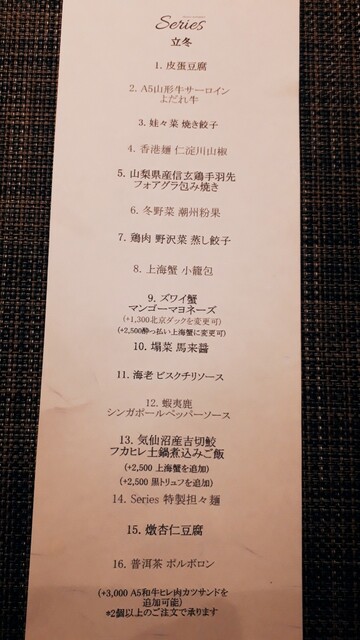 Series
立冬
1. 皮蛋豆腐
2. A5山形牛サーロイン
よだれ牛
3. 娃々菜 焼き餃子
4. 香港麺 仁淀川山椒
5. 山梨県産信玄鶏手羽先
フォアグラ包み焼き
6. 冬野菜 潮州粉果
7. 鶏肉 野沢菜 蒸し餃子
8. 上海蟹 小籠包
9. ズワイ蟹
マンゴーマヨネーズ
(+1,300北京ダックを変更可)
(+2,500酔っ払い上海蟹に変更可)
10. 塌菜 馬来醤
11. 海老 ビスクチリソース
12. 蝦夷鹿
シンガポールペッパーソース
13. 気仙沼産吉切鮫
フカヒレ土鍋煮込みご飯
(+2,500 上海蟹を追加)
(+2,500 黒トリュフを追加)
14. Series 特製担々麺
15. 燉杏仁豆腐
16. 普洱茶 ポルボロン
(+3,000 A5和牛ヒレ肉カツサンドを
追加可能)
*2個以上のご注文で承ります